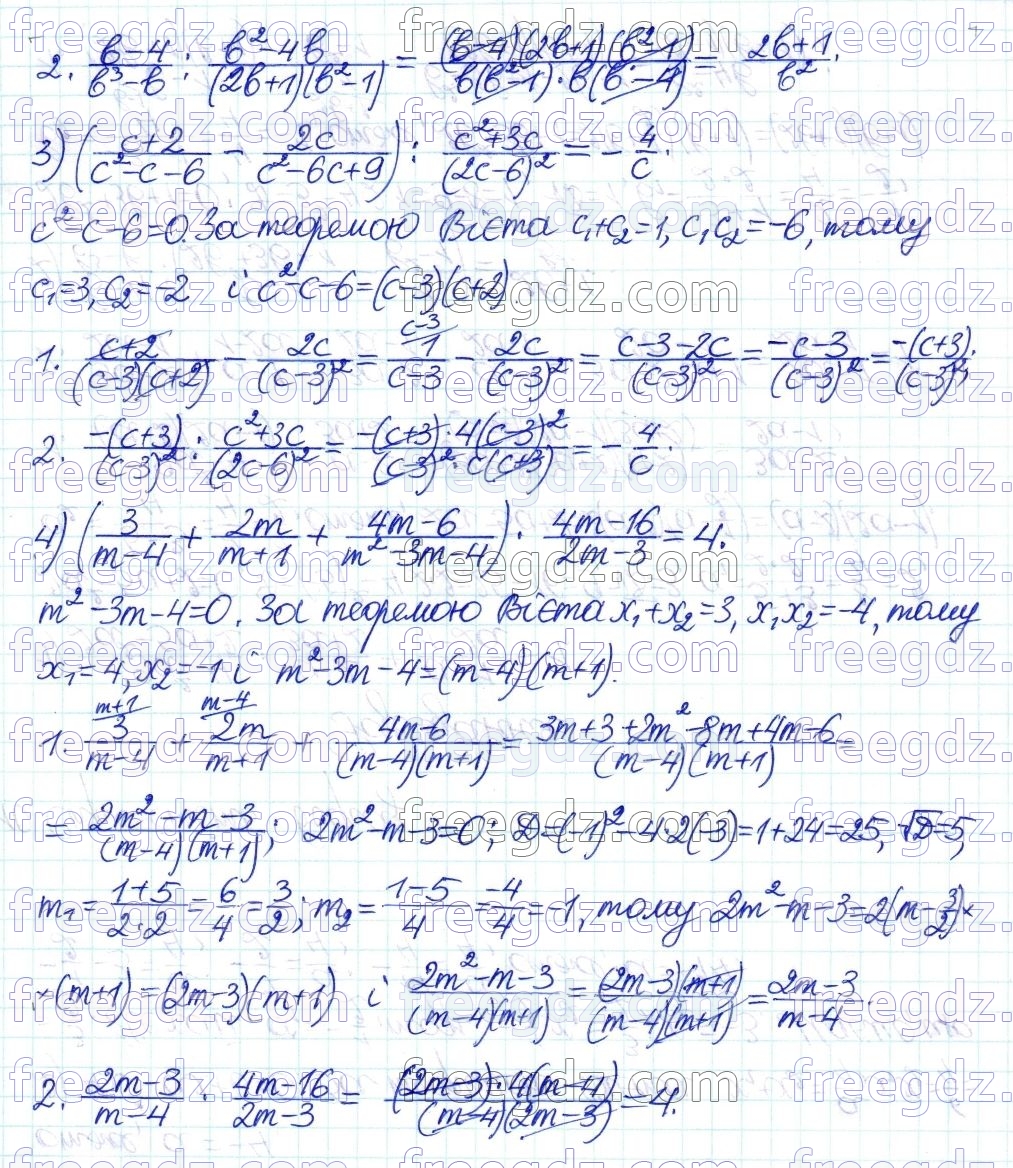 2. (b-4)/(b³-b) : (b²-4b)/((2b+1)(b²-1)) = ((b-4)(2b+1)(b²-1))/(b(b²-1)·b(b-4)) = (2b+1)/b².
3) ((c+2)/(c²-c-6) - 2c/(c²-6c+9)) : (c²+3c)/(2c-6)² = -4/c.
c²-c-6=0. За теоремою Вієта c₁+c₂=1, c₁c₂=-6, тому
c₁=3, c₂=-2 і c²-c-6=(c-3)(c+2)
1. (c+2)/((c-3)(c+2)) - 2c/(c-3)² = 1/(c-3) - 2c/(c-3)² = (c-3-2c)/(c-3)² = (-c-3)/(c-3)² = -(c+3)/(c-3)²;
2. -(c+3)/(c-3)² : (c²+3c)/(2c-6)² = (-(c+3)·4(c-3)²)/((c-3)²·c(c+3)) = -4/c.
4) (3/(m-4) + 2m/(m+1) + (4m-6)/(m²-3m-4)) · (4m-16)/(2m-3) = 4.
m²-3m-4=0. За теоремою Вієта x₁+x₂=3, x₁x₂=-4, тому
x₁=4, x₂=-1 і m²-3m-4=(m-4)(m+1).
1. 3/(m-4) + 2m/(m+1) + (4m-6)/((m-4)(m+1)) = (3m+3+2m²-8m+4m-6)/((m-4)(m+1)) =
= (2m²-m-3)/((m-4)(m+1)); 2m²-m-3=0; D=(-1)²-4·2(-3)=1+24=25, √D=5,
m₁ = (1+5)/(2·2) = 6/4 = 3/2; m₂ = (1-5)/4 = -4/4 = -1, тому 2m²-m-3=2(m-3/2)×
×(m+1)=(2m-3)(m+1) і (2m²-m-3)/((m-4)(m+1)) = ((2m-3)(m+1))/((m-4)(m+1)) = (2m-3)/(m-4).
2. (2m-3)/(m-4) · (4m-16)/(2m-3) = ((2m-3)·4(m-4))/((m-4)(2m-3)) = 4.
freegdz.com